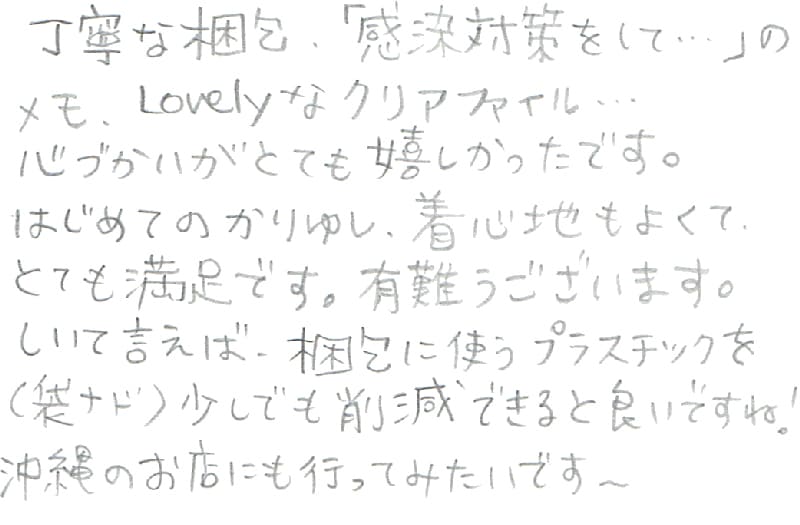 丁寧な梱包、「感染対策をして…」の
メモ、Lovelyなクリアファイル…
心づかいがとても嬉しかったです。
はじめてのかりゆし、着心地もよくて、
とても満足です。有難うございます。
しいて言えば、梱包に使うプラスチックを
(袋ナド)少しでも削減できると良いですね!
沖縄のお店にも行ってみたいです〜